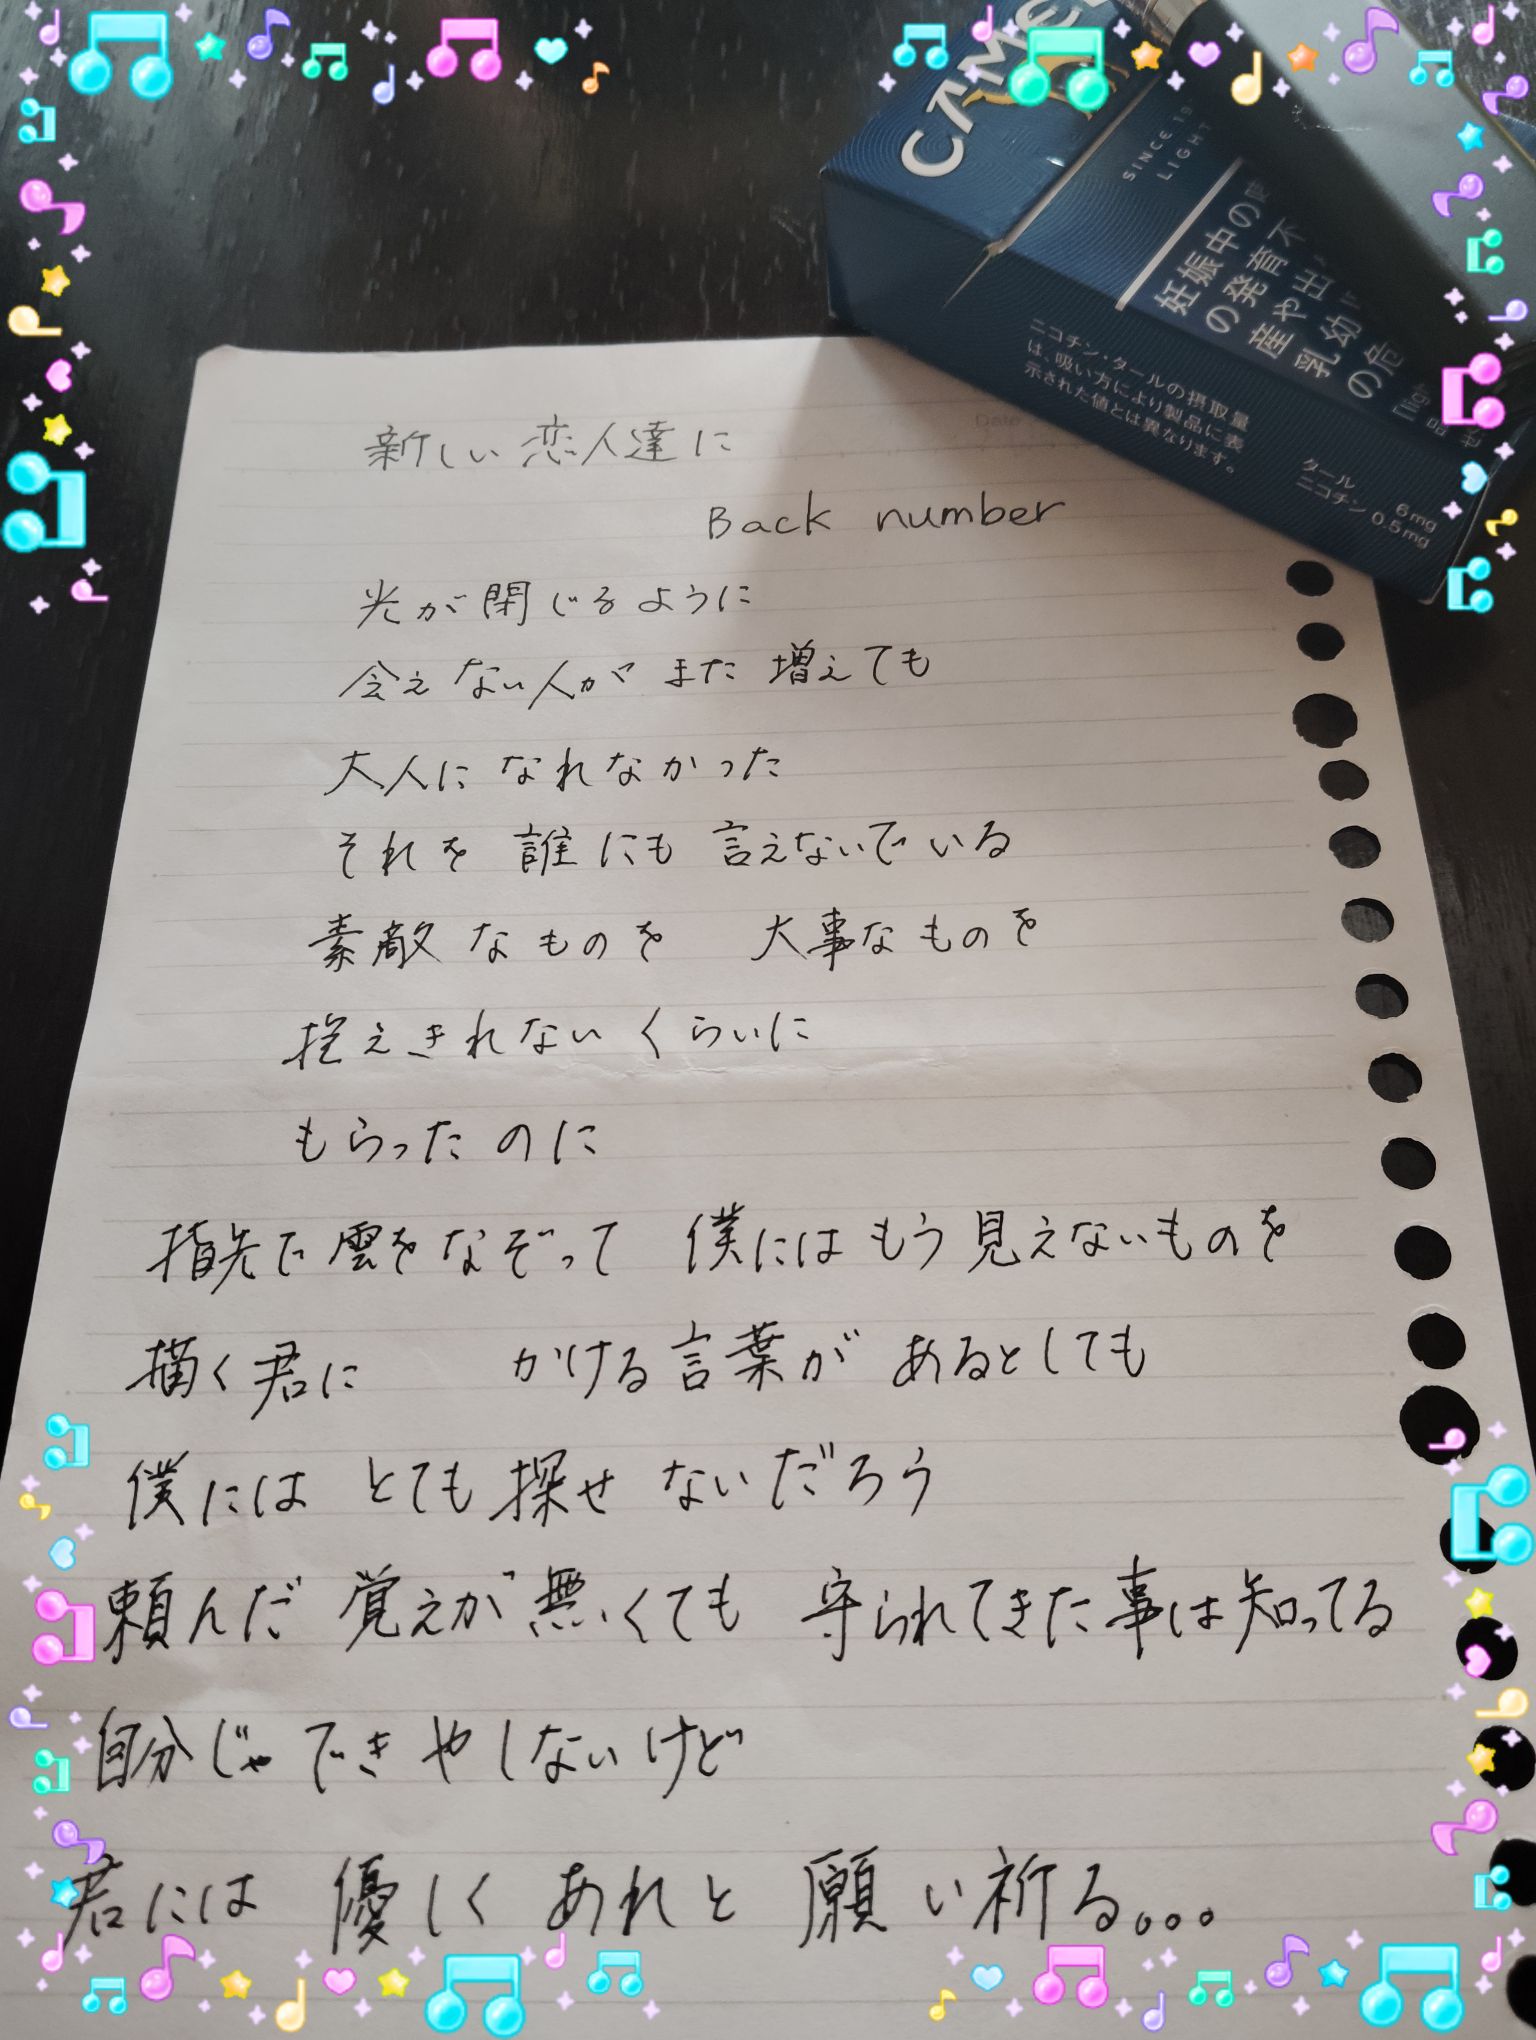 CAMEL
SINCE 19
LIGHT
妊娠中の
の発育不
産や出
乳幼
の危
ニコチン・タールの摂取量
は、吸い方により製品に表
示された値とは異なります。
タール 6mg
ニコチン 0.5mg
Date
新しい恋人達に
Back number
光が閉じるように
会えない人がまた増えても
大人になれなかった
それを誰にも言えないでいる
素敵なものを 大事なものを
抱えきれないくらいに
もらったのに
指先で雲をなぞって 僕にはもう見えないものを
描く君に かける言葉が あるとしても
僕には とても探せないだろう
頼んだ覚えが無くても 守られてきた事は知ってる
自分じゃできやしないけど
君には 優しくあれと 願い祈る。。。